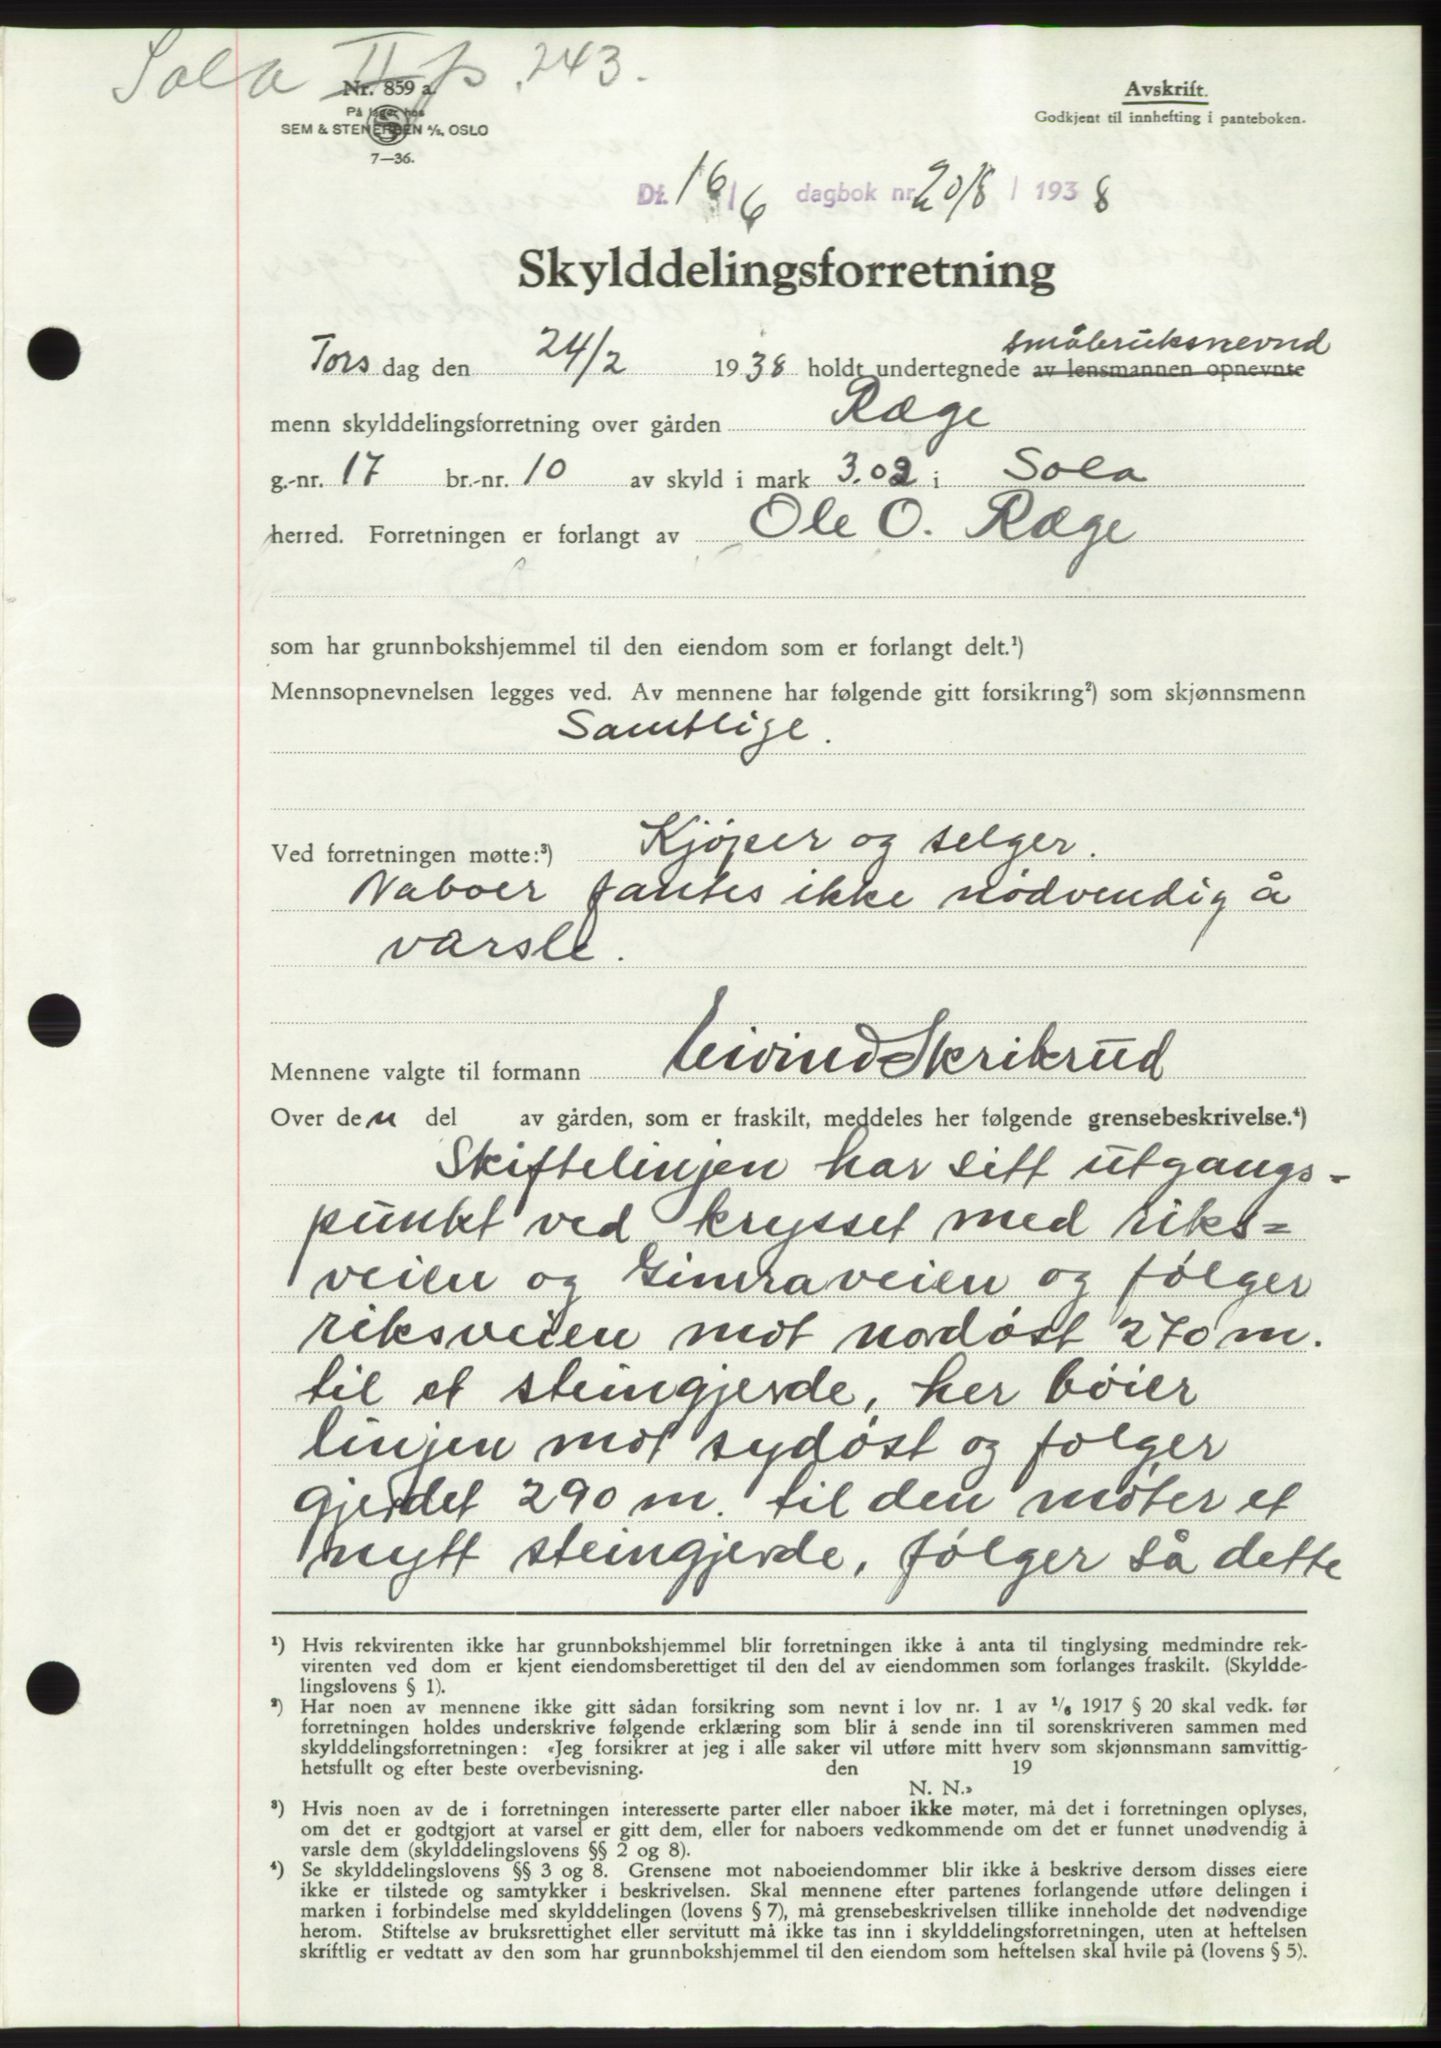 Sola II p. 243.
Nr. 859 a.
På lager hos
SEM & STENERSEN A/S, OSLO
7—36.
Avskrift.
Godkjent til innhefting i panteboken.
Df. 16/6 dagbok nr. / 1938
Skylddelingsforretning
Tors dag den 24/2 1938 holdt undertegnede av lensmannen opnevnte småbruksnevnd
menn skylddelingsforretning over gården Ræge
g.-nr. 17 br.-nr. 10 av skyld i mark 3.02 i Sola
herred. Forretningen er forlangt av Ole O. Ræge
som har grunnbokshjemmel til den eiendom som er forlangt delt.¹)
Mennsopnevnelsen legges ved. Av mennene har følgende gitt forsikring²) som skjønnsmenn
Samtlige.
Ved forretningen møtte:³) Kjöper og selger.
Naboer fantes ikke nödvendig å
varsle.
Mennene valgte til formann Eivind Skrikrud
Over den del av gården, som er fraskilt, meddeles her følgende grensebeskrivelse.⁴)
Skiftelinjen har sitt utgangs-
punkt ved krysset med riks=
veien og Gimraveien og følger
riksveien mot nordöst 270 m.
til et steingjerde, her böier
linjen mot sydöst og følger
gjerdet 290 m. til den møter et
nytt steingjerde, følger så dette
¹) Hvis rekvirenten ikke har grunnbokshjemmel blir forretningen ikke å anta til tinglysing medmindre rek-
virenten ved dom er kjent eiendomsberettiget til den del av eiendommen som forlanges fraskilt. (Skyldde-
lingslovens § 1).
²) Har noen av mennene ikke gitt sådan forsikring som nevnt i lov nr. 1 av 1/6 1917 § 20 skal vedk. før
forretningen holdes underskrive følgende erklæring som blir å sende inn til sorenskriveren sammen med
skylddelingsforretningen: «Jeg forsikrer at jeg i alle saker vil utføre mitt hverv som skjønnsmann samvittig-
hetsfullt og efter beste overbevisning. den 19
N. N.»
³) Hvis noen av de i forretningen interesserte parter eller naboer ikke møter, må det i forretningen oplyses,
om det er godtgjort at varsel er gitt dem, eller for naboers vedkommende om det er funnet unødvendig å
varsle dem (skylddelingslovens §§ 2 og 8).
⁴) Se skylddelingslovens §§ 3 og 8. Grensene mot naboeiendommer blir ikke å beskrive dersom disses eiere
ikke er tilstede og samtykker i beskrivelsen. Skal mennene efter partenes forlangende utføre delingen i
marken i forbindelse med skylddelingen (lovens § 7), må grensebeskrivelsen tillike inneholde det nødvendige
herom. Stiftelse av bruksrettighet eller servitutt må ikke tas inn i skylddelingsforretningen, uten at heftelsen
skriftlig er vedtatt av den som har grunnbokshjemmel til den eiendom som heftelsen skal hvile på (lovens § 5).